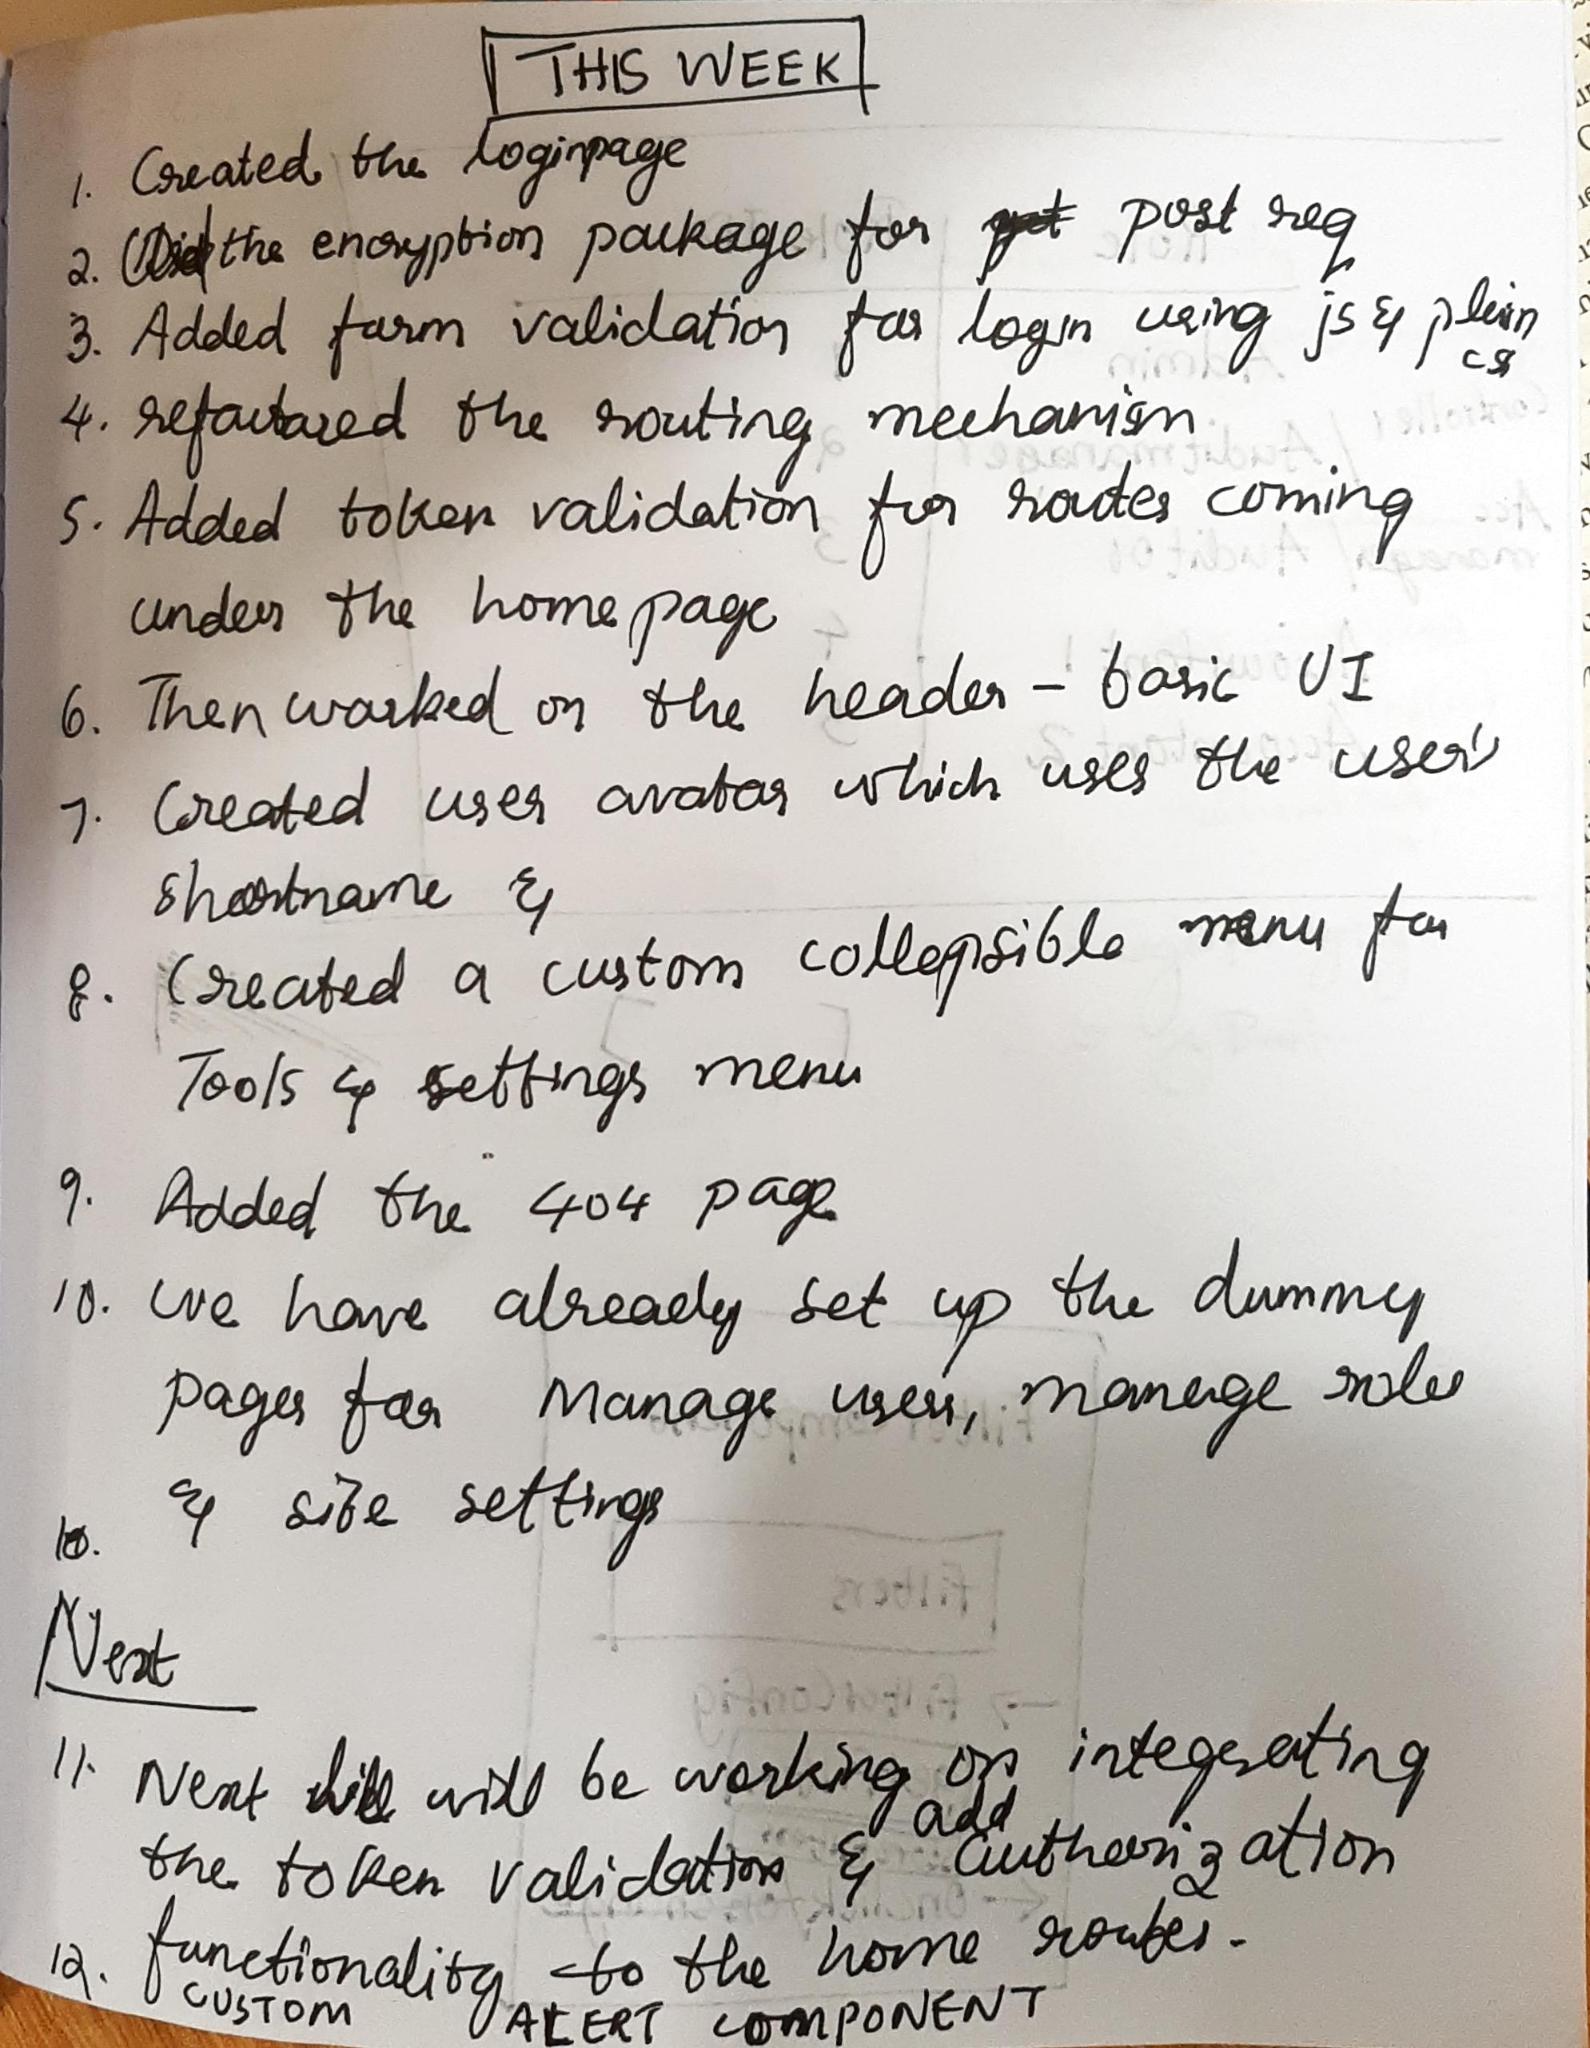 THIS WEEK
1. Created the loginpage
2. Did the encryption package for post req
3. Added form validation for login using js & plain
css
4. refactored the routing mechanism
5. Added token validation for routes coming
under the home page
6. Then worked on the header - basic UI
7. Created user avatar which uses the user's
shortname &
8. Created a custom collapsible menu for
Tools & settings menu
9. Added the 404 page
10. we have already set up the dummy
pages for Manage users, manage roles
& site settings
10.
Next
11. Next will be working on integerating
the token validation & add authorization
functionality to the home routes.
12. CUSTOM ALERT COMPONENT